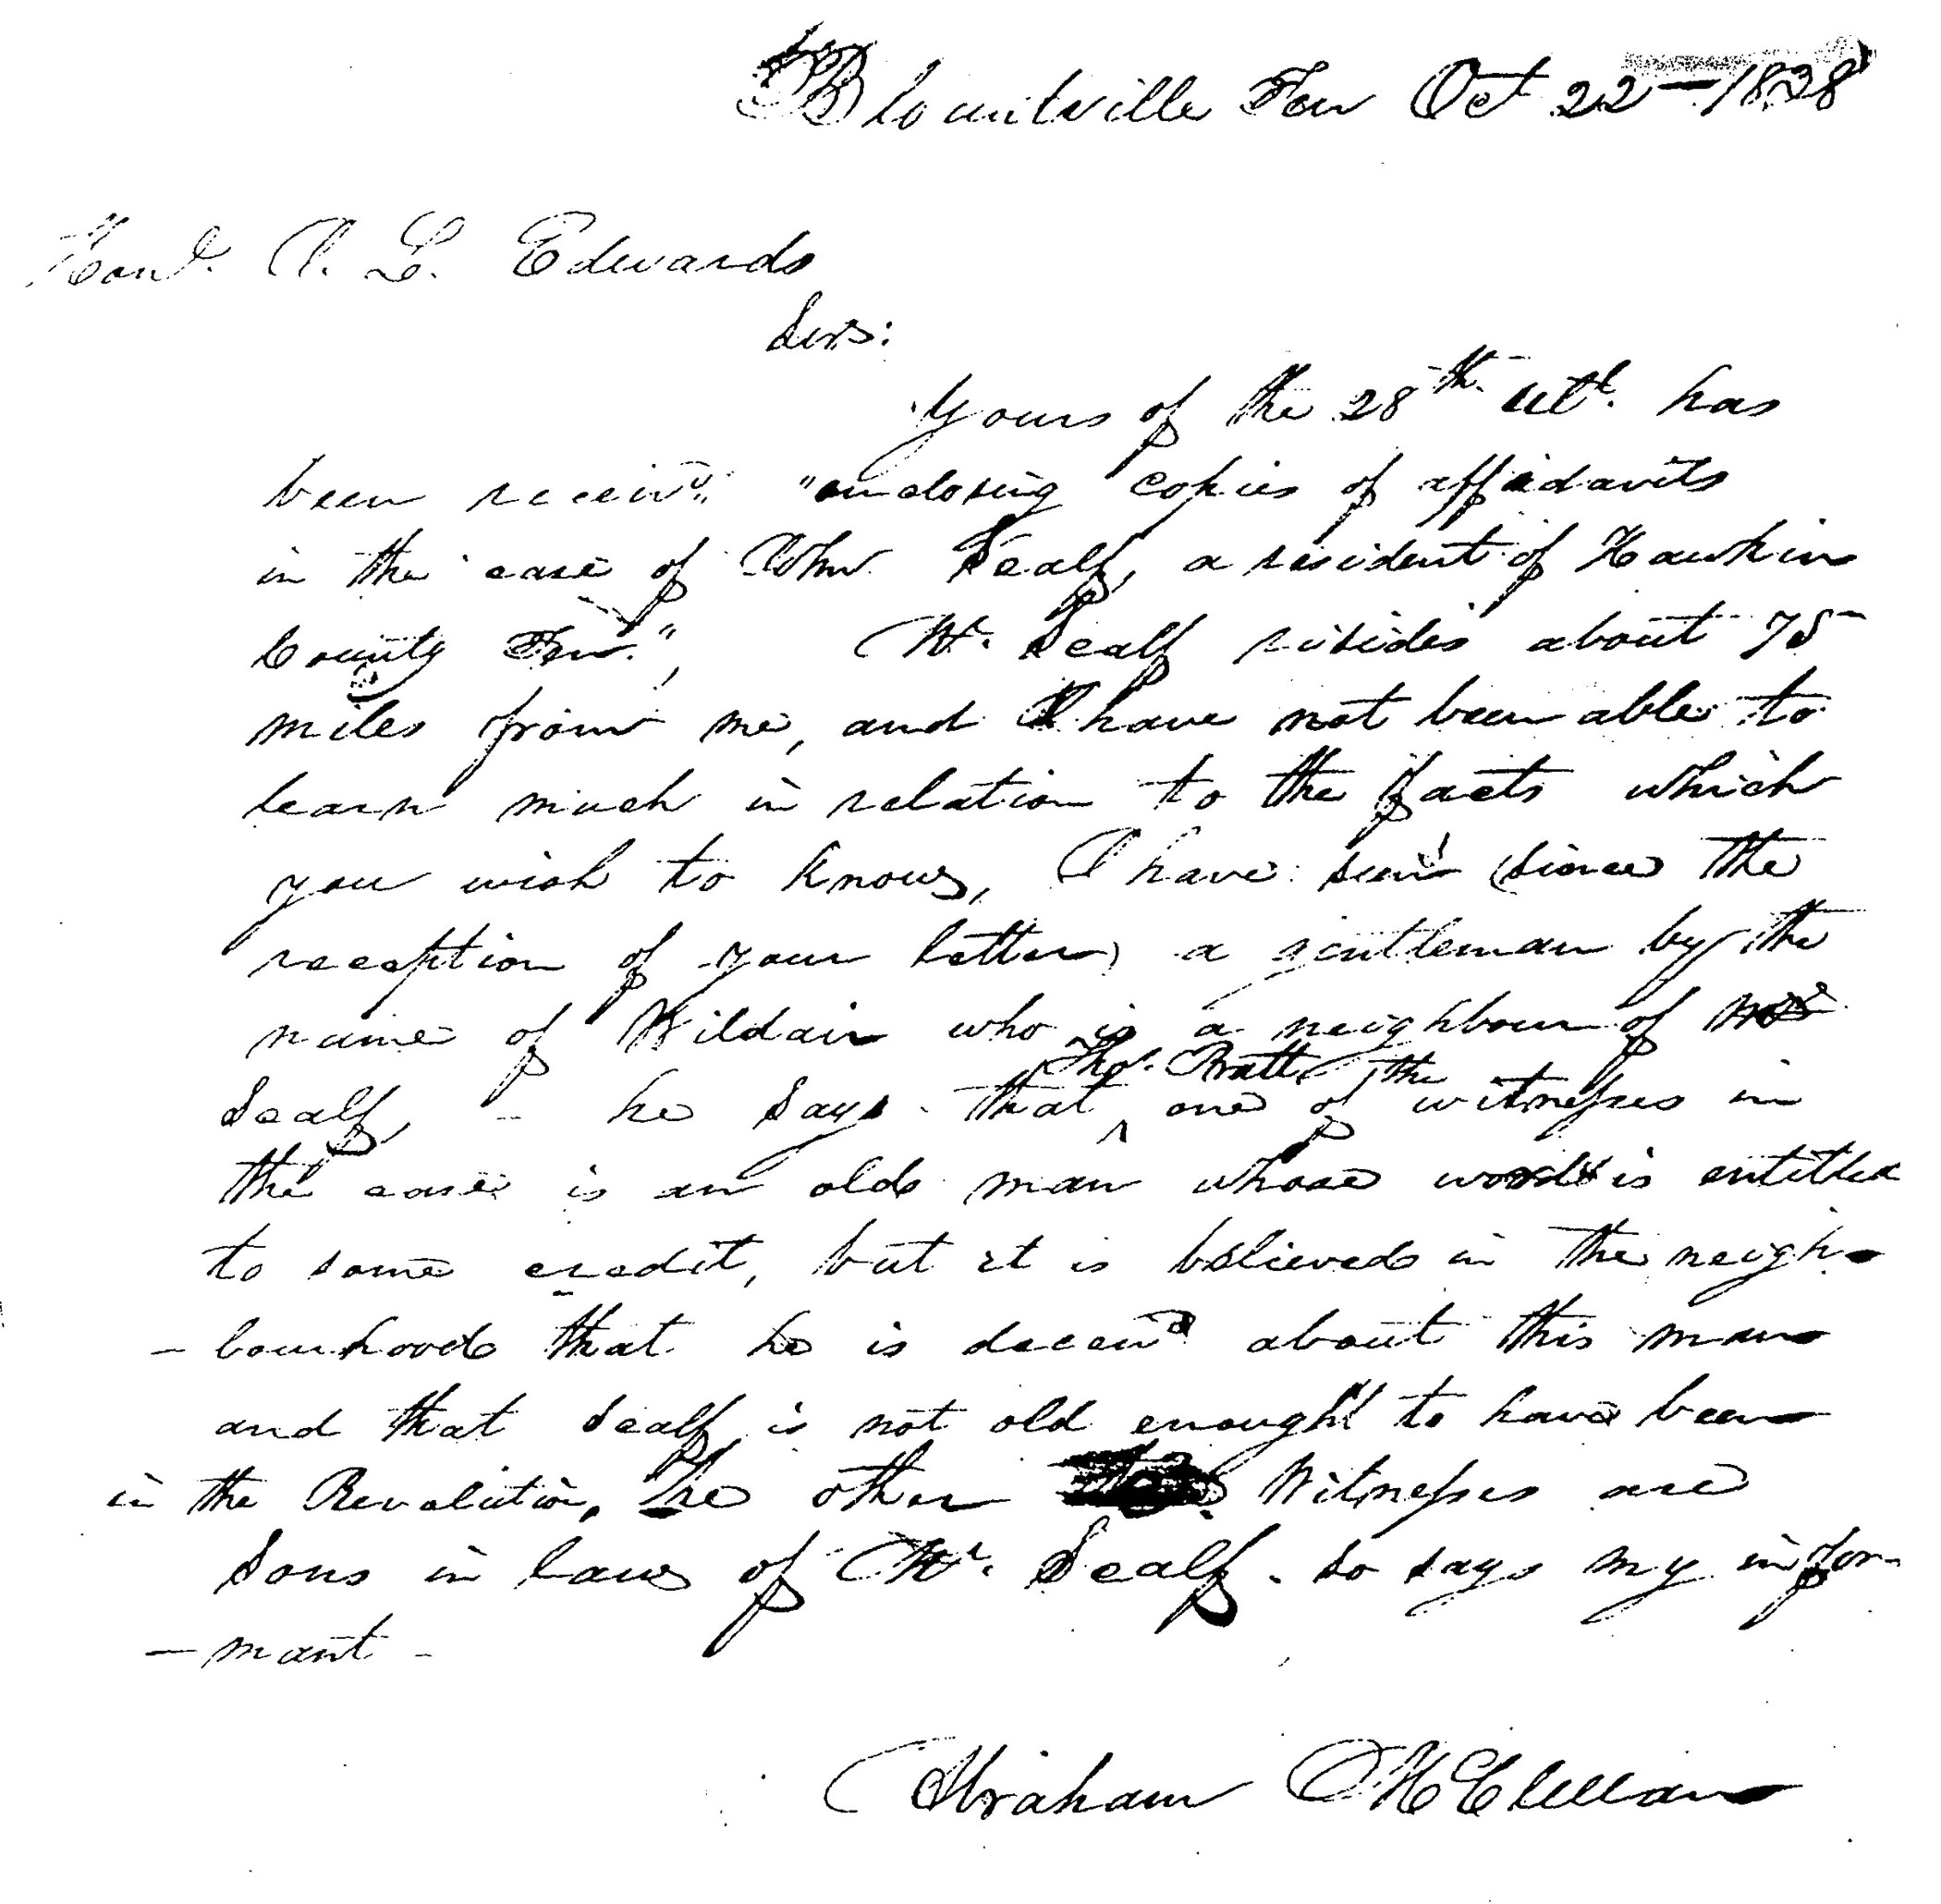 Blountville Ten Oct 22 — 1838
Honl. J. L. Edwards
Sir:
Yours of the 28th. ult. has
been receivd. "enclosing copies of affidavits
in the case of John Scalf, a resident of Hawkin
County Ten.", Mr. Scalf resides about 75
miles from me, and I have not been able to
learn much in relation to the facts which
you wish to know, I have seen (since the
reception of your letter) a gentleman by the
name of Wildair who is a neighbour of Mr
Scalf, - he says that Tho. Pratt one of the witnesses in
the case is an old man whose word is entitled
to some credit, but it is believed in the neigh-
- bourhood that he is deceivd about this man
and that Scalf is not old enough to have been
in the Revolution, The other Witnesses are
Sons in law of Mr. Scalf - so says my infor-
- mant -
Abraham McClellan